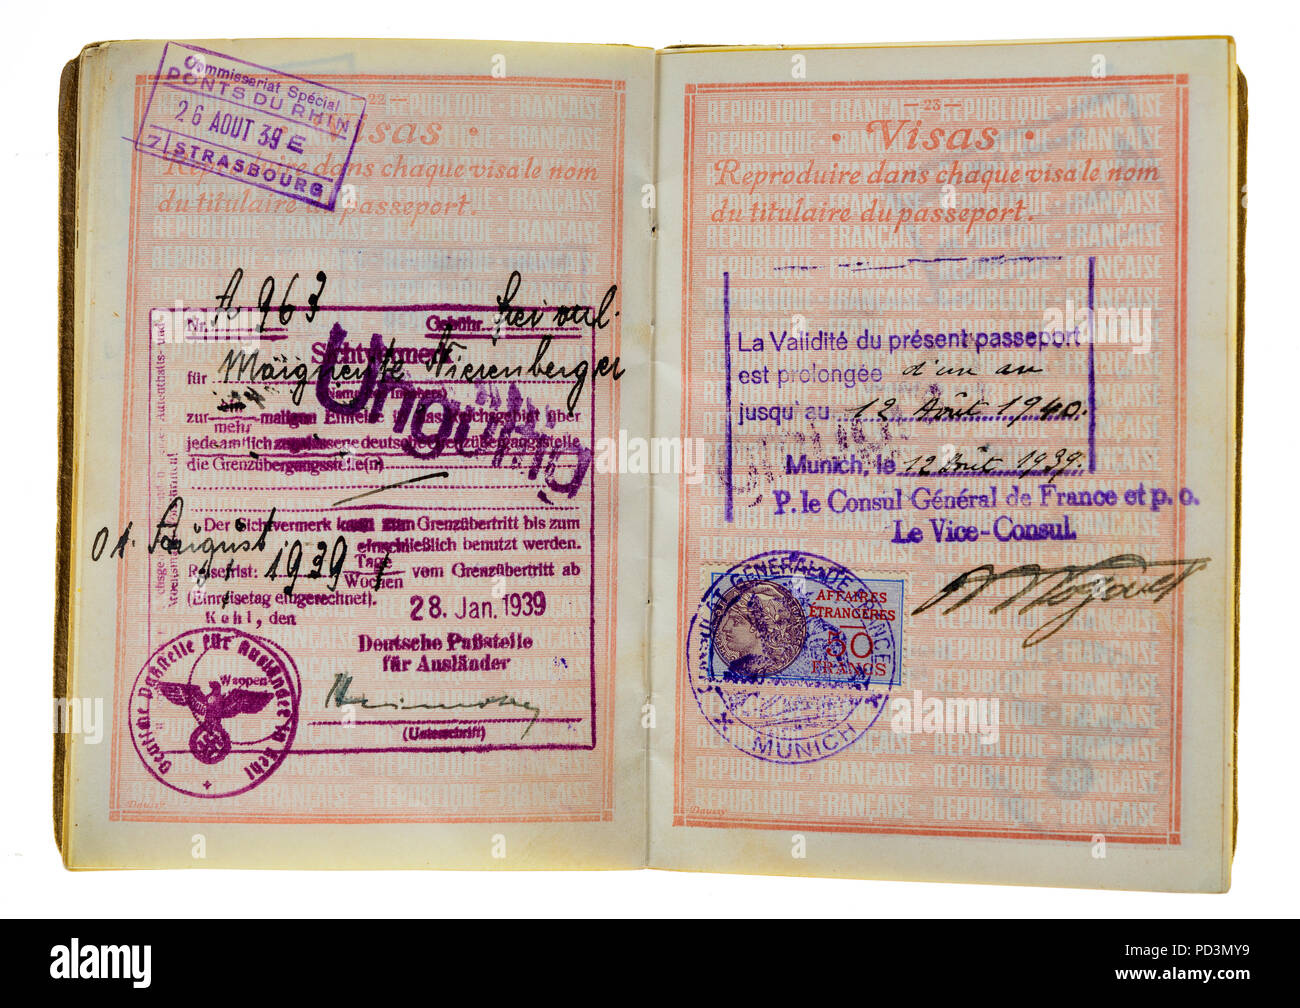 Commissariat Spécial
PONTS DU RHIN
26 AOUT 39 E
7 STRASBOURG
22
Visas
Reproduire dans chaque visa le nom
du titulaire du passeport.
Nr. A 963 Gebühr
Sichtvermerk
Ungültig
für Nierenberger
zur maligen Einreise Reichsgebiet über
mehr
jede amtlich zugelassene deutsche Grenzübergangsstelle
die Grenzübergangsstelle(n)
Der Sichtvermerk kann zum Grenzübertritt bis zum
August 1939
einschließlich benutzt werden.
Reisefrist: Tage
Wochen vom Grenzübertritt ab
(Einreisetag eingerechnet).
Kehl, den 28. Jan. 1939
Deutsche Paßstelle
für Ausländer
(Unterschrift)
Deutsche Paßstelle für Ausländer in Kehl
Wappen
RÉPUBLIQUE FRANÇAISE
23
Visas
Reproduire dans chaque visa le nom
du titulaire du passeport.
La Validité du présent passeport
est prolongée d'un an
jusqu'au 12 Août 1940.
Munich, le 12 Août 1939.
P. le Consul Général de France et p. o.
Le Vice-Consul.
AFFAIRES
ÉTRANGÈRES
50
FRANCS
CONSULAT GENERAL DE FRANCE
MUNICH
Daussy
Daussy
alamy
alamy
Image ID: PD3MY9
www.alamy.com